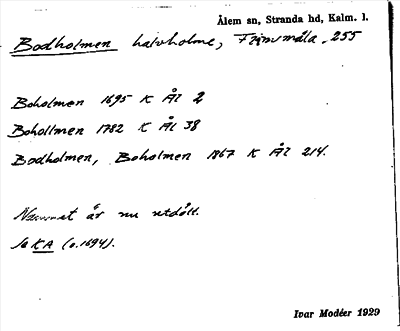 Ålem sn, Stranda hd, Kalm. l.
Bodholmen halvholme, 255
Boholmen 1695 K Ål 2
Bohollmen 1782 K Ål 38
Bodholmen, Boholmen 1867 K Ål 214.
Namnet är nu utdött.
Ja KA (o.1694).
Ivar Modéer 1929